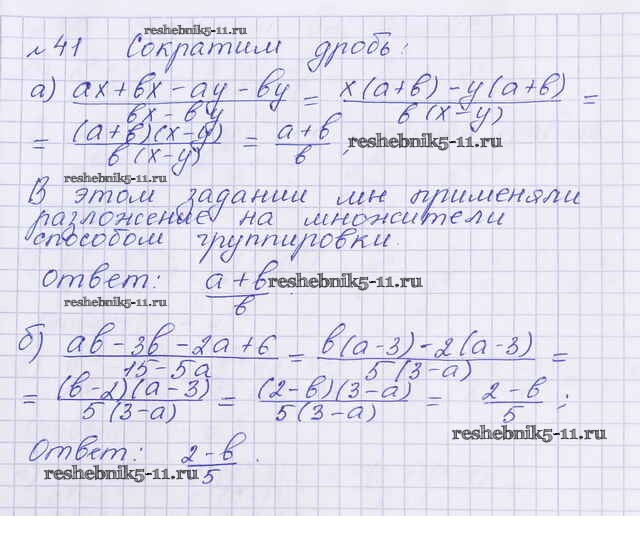 reshebnik5-11.ru
№41 Сократим дробь:
а) (ax+bx-ay-by)/(bx-by) = (x(a+b)-y(a+b))/(b(x-y)) =
= ((a+b)(x-y))/(b(x-y)) = (a+b)/b; reshebnik5-11.ru
reshebnik5-11.ru
В этом задании мы применяли
разложение на множители
способом группировки.
Ответ: (a+b)/b. reshebnik5-11.ru
reshebnik5-11.ru
б) (ab-3b-2a+6)/(15-5a) = (b(a-3)-2(a-3))/(5(3-a)) =
= ((b-2)(a-3))/(5(3-a)) = ((2-b)(3-a))/(5(3-a)) = (2-b)/5;
reshebnik5-11.ru
Ответ: (2-b)/5.
reshebnik5-11.ru